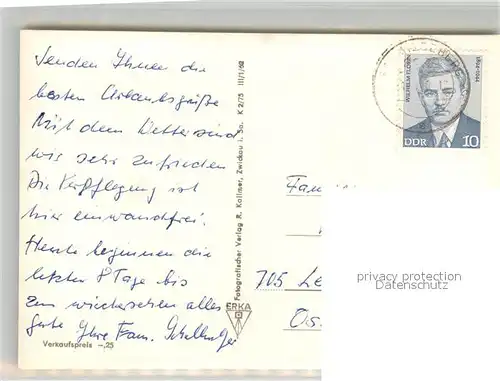 Senden Ihnen die
besten Urlaubsgrüße
Mit dem Wetter sind
wir sehr zufrieden
Die Verpflegung ist
hier einwandfrei.
Heute beginnen die
letzten 8 Tage bis
zum wiedersehen alles
gute Ihre Fam.
Verkaufspreis -,25
Fotografischer Verlag R. Kallmer, Zwickau i. Sa. K 2/75 III/1/60
ERKA
WILHELM FLORIN
1894-1944
DDR 10
Fam
705 Le
Os
privacy protection
Datenschutz